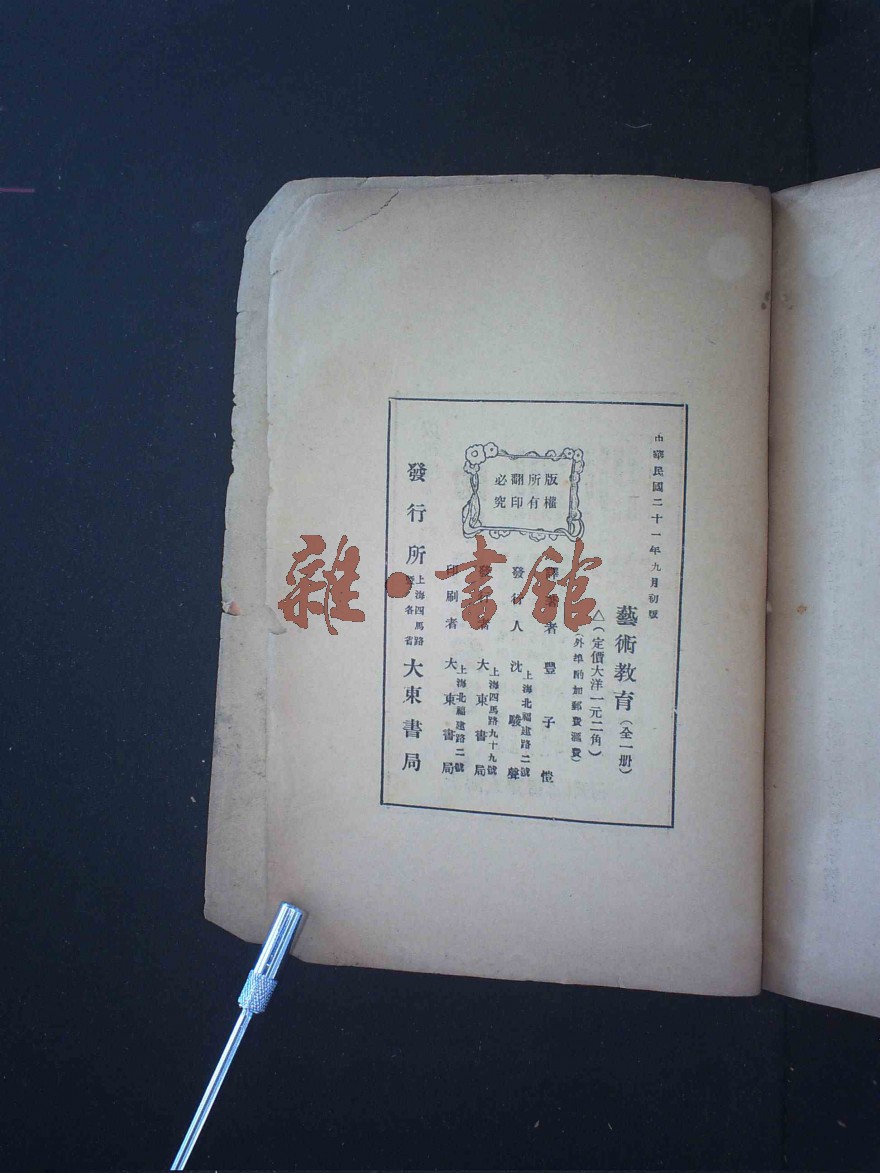 中華民國二十一年九月初版
藝術教育(全一册)
△(定價大洋一元二角)
(外埠酌加郵費滙費)
版權
所有
翻印
必究
譯著者 豐子愷
發行人 沈駿聲
上海北福建路二號
發行者 大東書局
上海四馬路九十九號
印刷者 大東書局
上海北福建路二號
發行所 上海四馬路
各省 大東書局
雜·書館